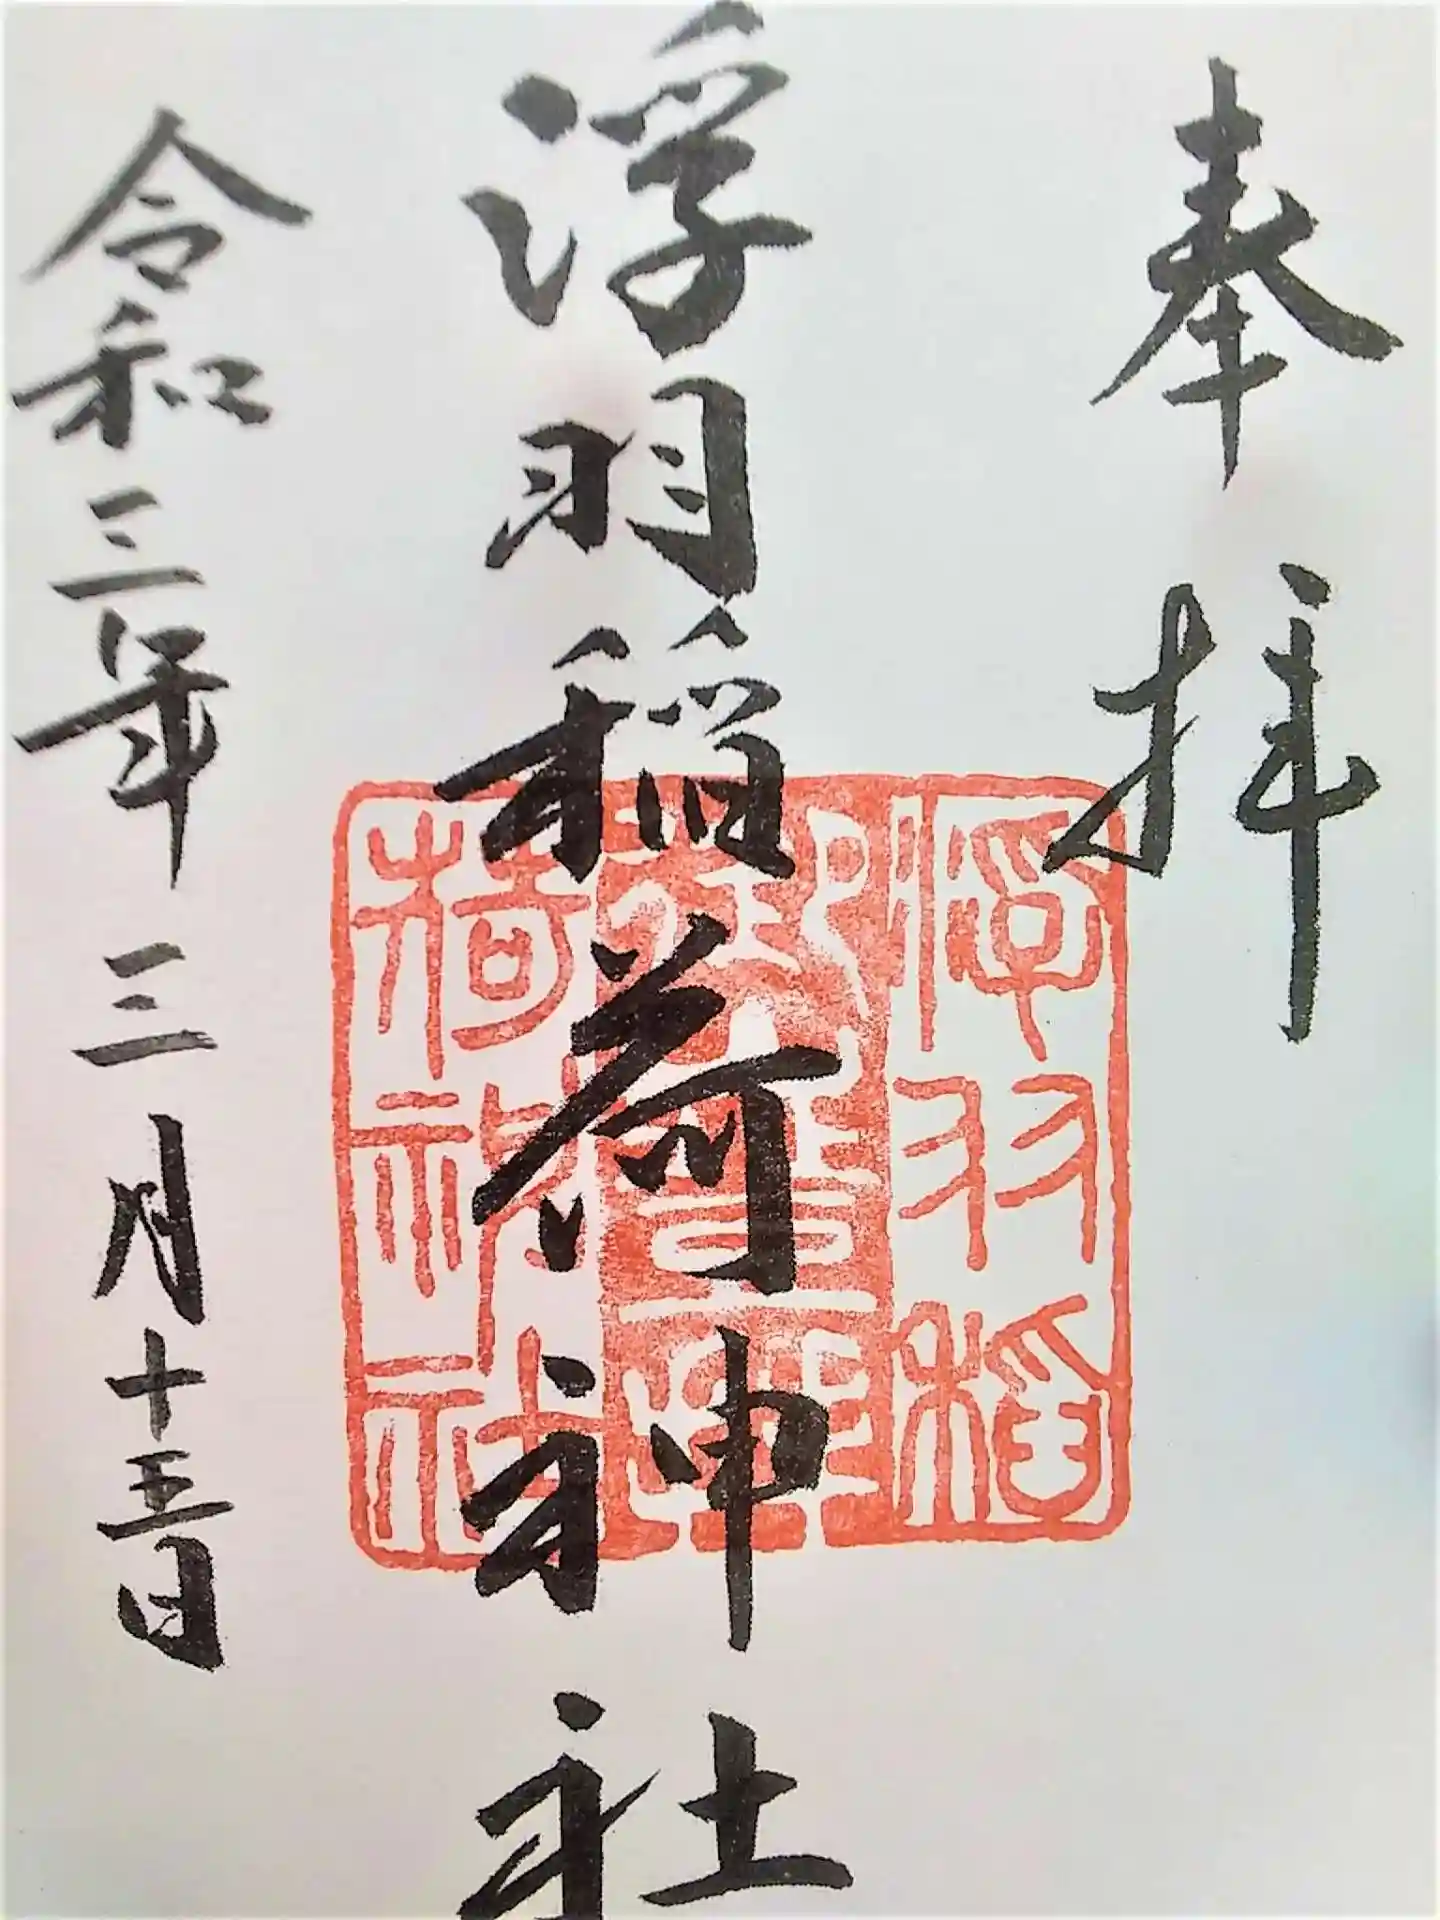 奉拝
浮羽稲荷神社
令和三年三月十三日
浮羽稲
荷神社